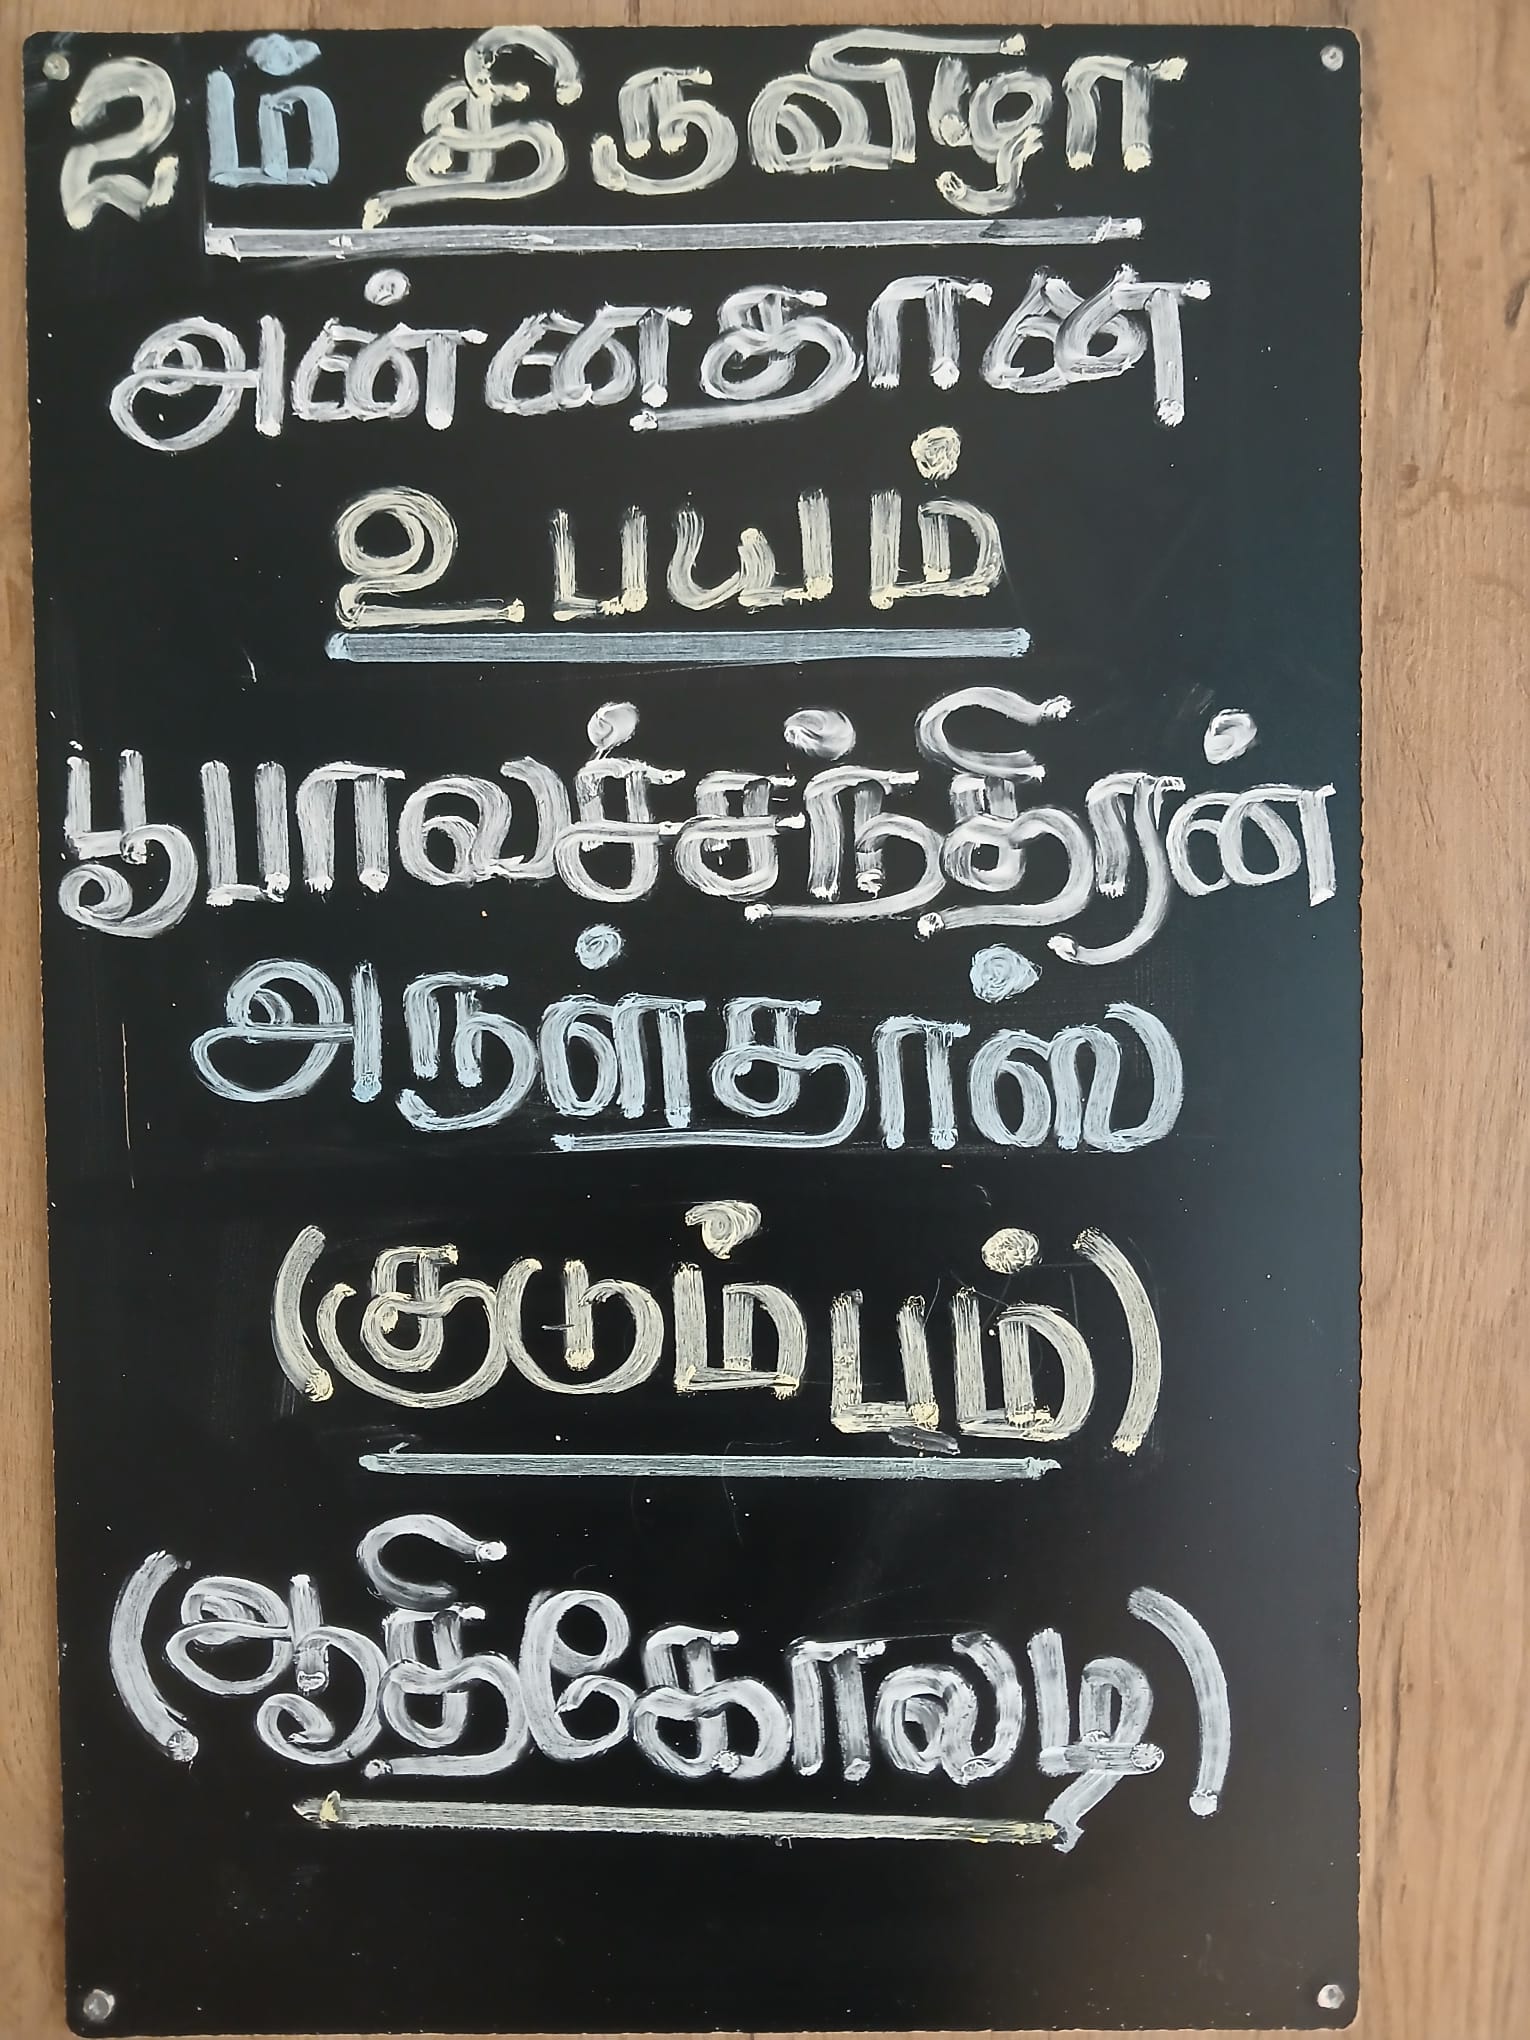 2ம் திருவிழா
அன்னதான
உபயம்
பூபாலச்சந்திரன்
அருள்தாஸ்
(குடும்பம்)
(ஆதிகோலடி)